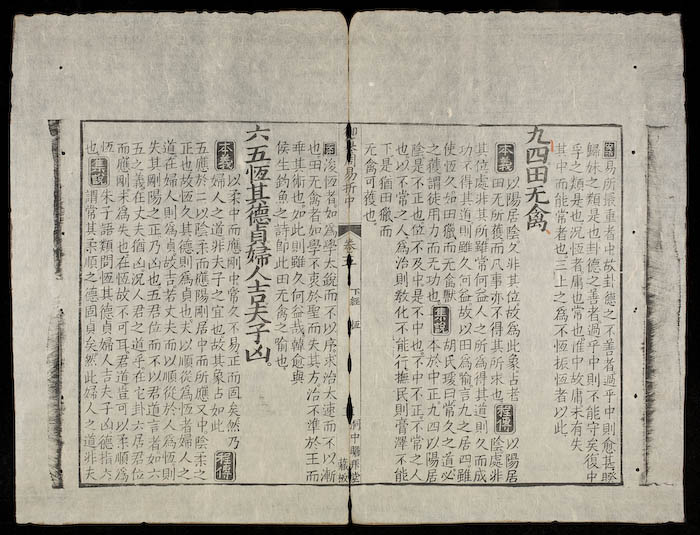 案 易所最重者中故卦德之不善者過乎中則愈甚暌
歸妹之類是也卦德之善者過乎中則不能守矣復中
孚之類是也況恆者庸也常也惟中故庸未有失
其中而能常者也三上之為不恆振恆者以此
九四田无禽
本義 以陽居陰久非其位故為此象占者
田无所獲而凡事亦不得其所求也 程傳 以陽居
陰處非
其位處非其所雖常何益人之所為得其道則久而成
功不得其道則雖久何益故以田為喻言九之居四雖
使恆久如田獵而无禽獸
之獲謂徒用力而无功也 集說 胡氏瑗曰常久之道必
本於中正九四以陽居
陰是不正也位不及中是不中也不中不正不常之人
也以不常之人為治則教化不能行撫民則膏澤不能
下是猶田獵而
无禽可獲也
案 浚恆者如為學太銳而不以序求治太速而不以漸
也田无禽者如學不衷於聖而失其方治不準於王而
乖其術也如此則雖久何益哉韓愈與
侯生釣魚之詩即此田无禽之喻也
六五恆其德貞婦人吉夫子凶
本義 以柔中而應剛中常久不易正而固矣然乃
婦人之道非夫子之宜也故其象占如此 程傳
五應於二以陰柔而應陽剛居中而所應又中陰柔之
正也故恆久其德則為貞也夫以順從為恆者婦人之
道在婦人則為貞故吉若丈夫而以順從於人為恆則
失其剛陽之正乃凶也五君位而不以君道言者如六
五之義在丈夫猶凶況人君之道乎在它卦六居君位
而應剛未為失也在恆故不可耳君道豈可以柔順為
恆
也 集說 朱子語類問恆其德貞婦人吉夫子凶德指六
謂常其柔順之德固貞矣然此婦人之道非夫
周易折中
卷五 下經 恆